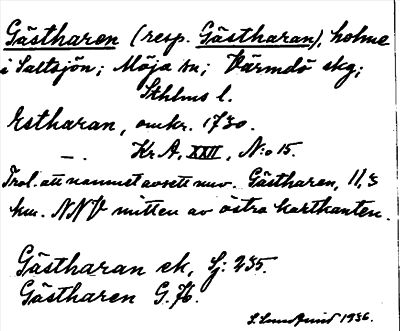 Gästharen (resp. Gästharan), holme
i Saltsjön; Möja sn; Värmdö skg;
Sthlms l.
Estharan, omkr. 1730.
—. Kr. A, XXII, N:o 15.
Trol. att namnet avsett nuv. Gästharen, 11,3
km. NNV mitten av östra kartkanten.
Gästharan ek, Sj: 235.
Gästharen G. 76.
S. 1936.